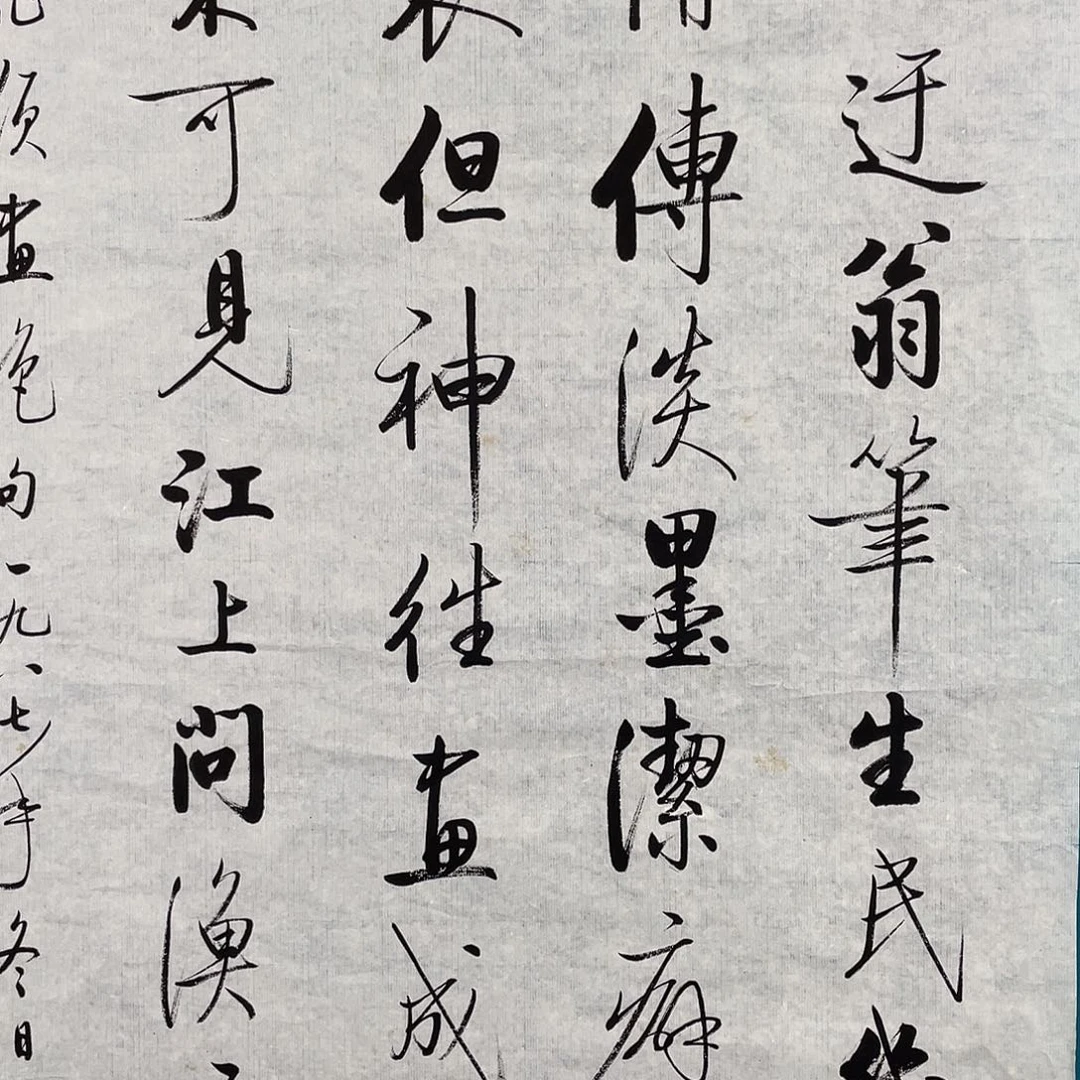 迂翁筆生民
傳淡墨潔癖
但神往畫成
可見江上問漁
須畫色句一九八七年冬日